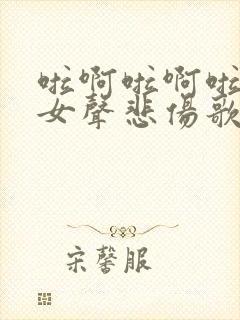 啦啊啦啊啦
女聲悲傷歌
宋馨服